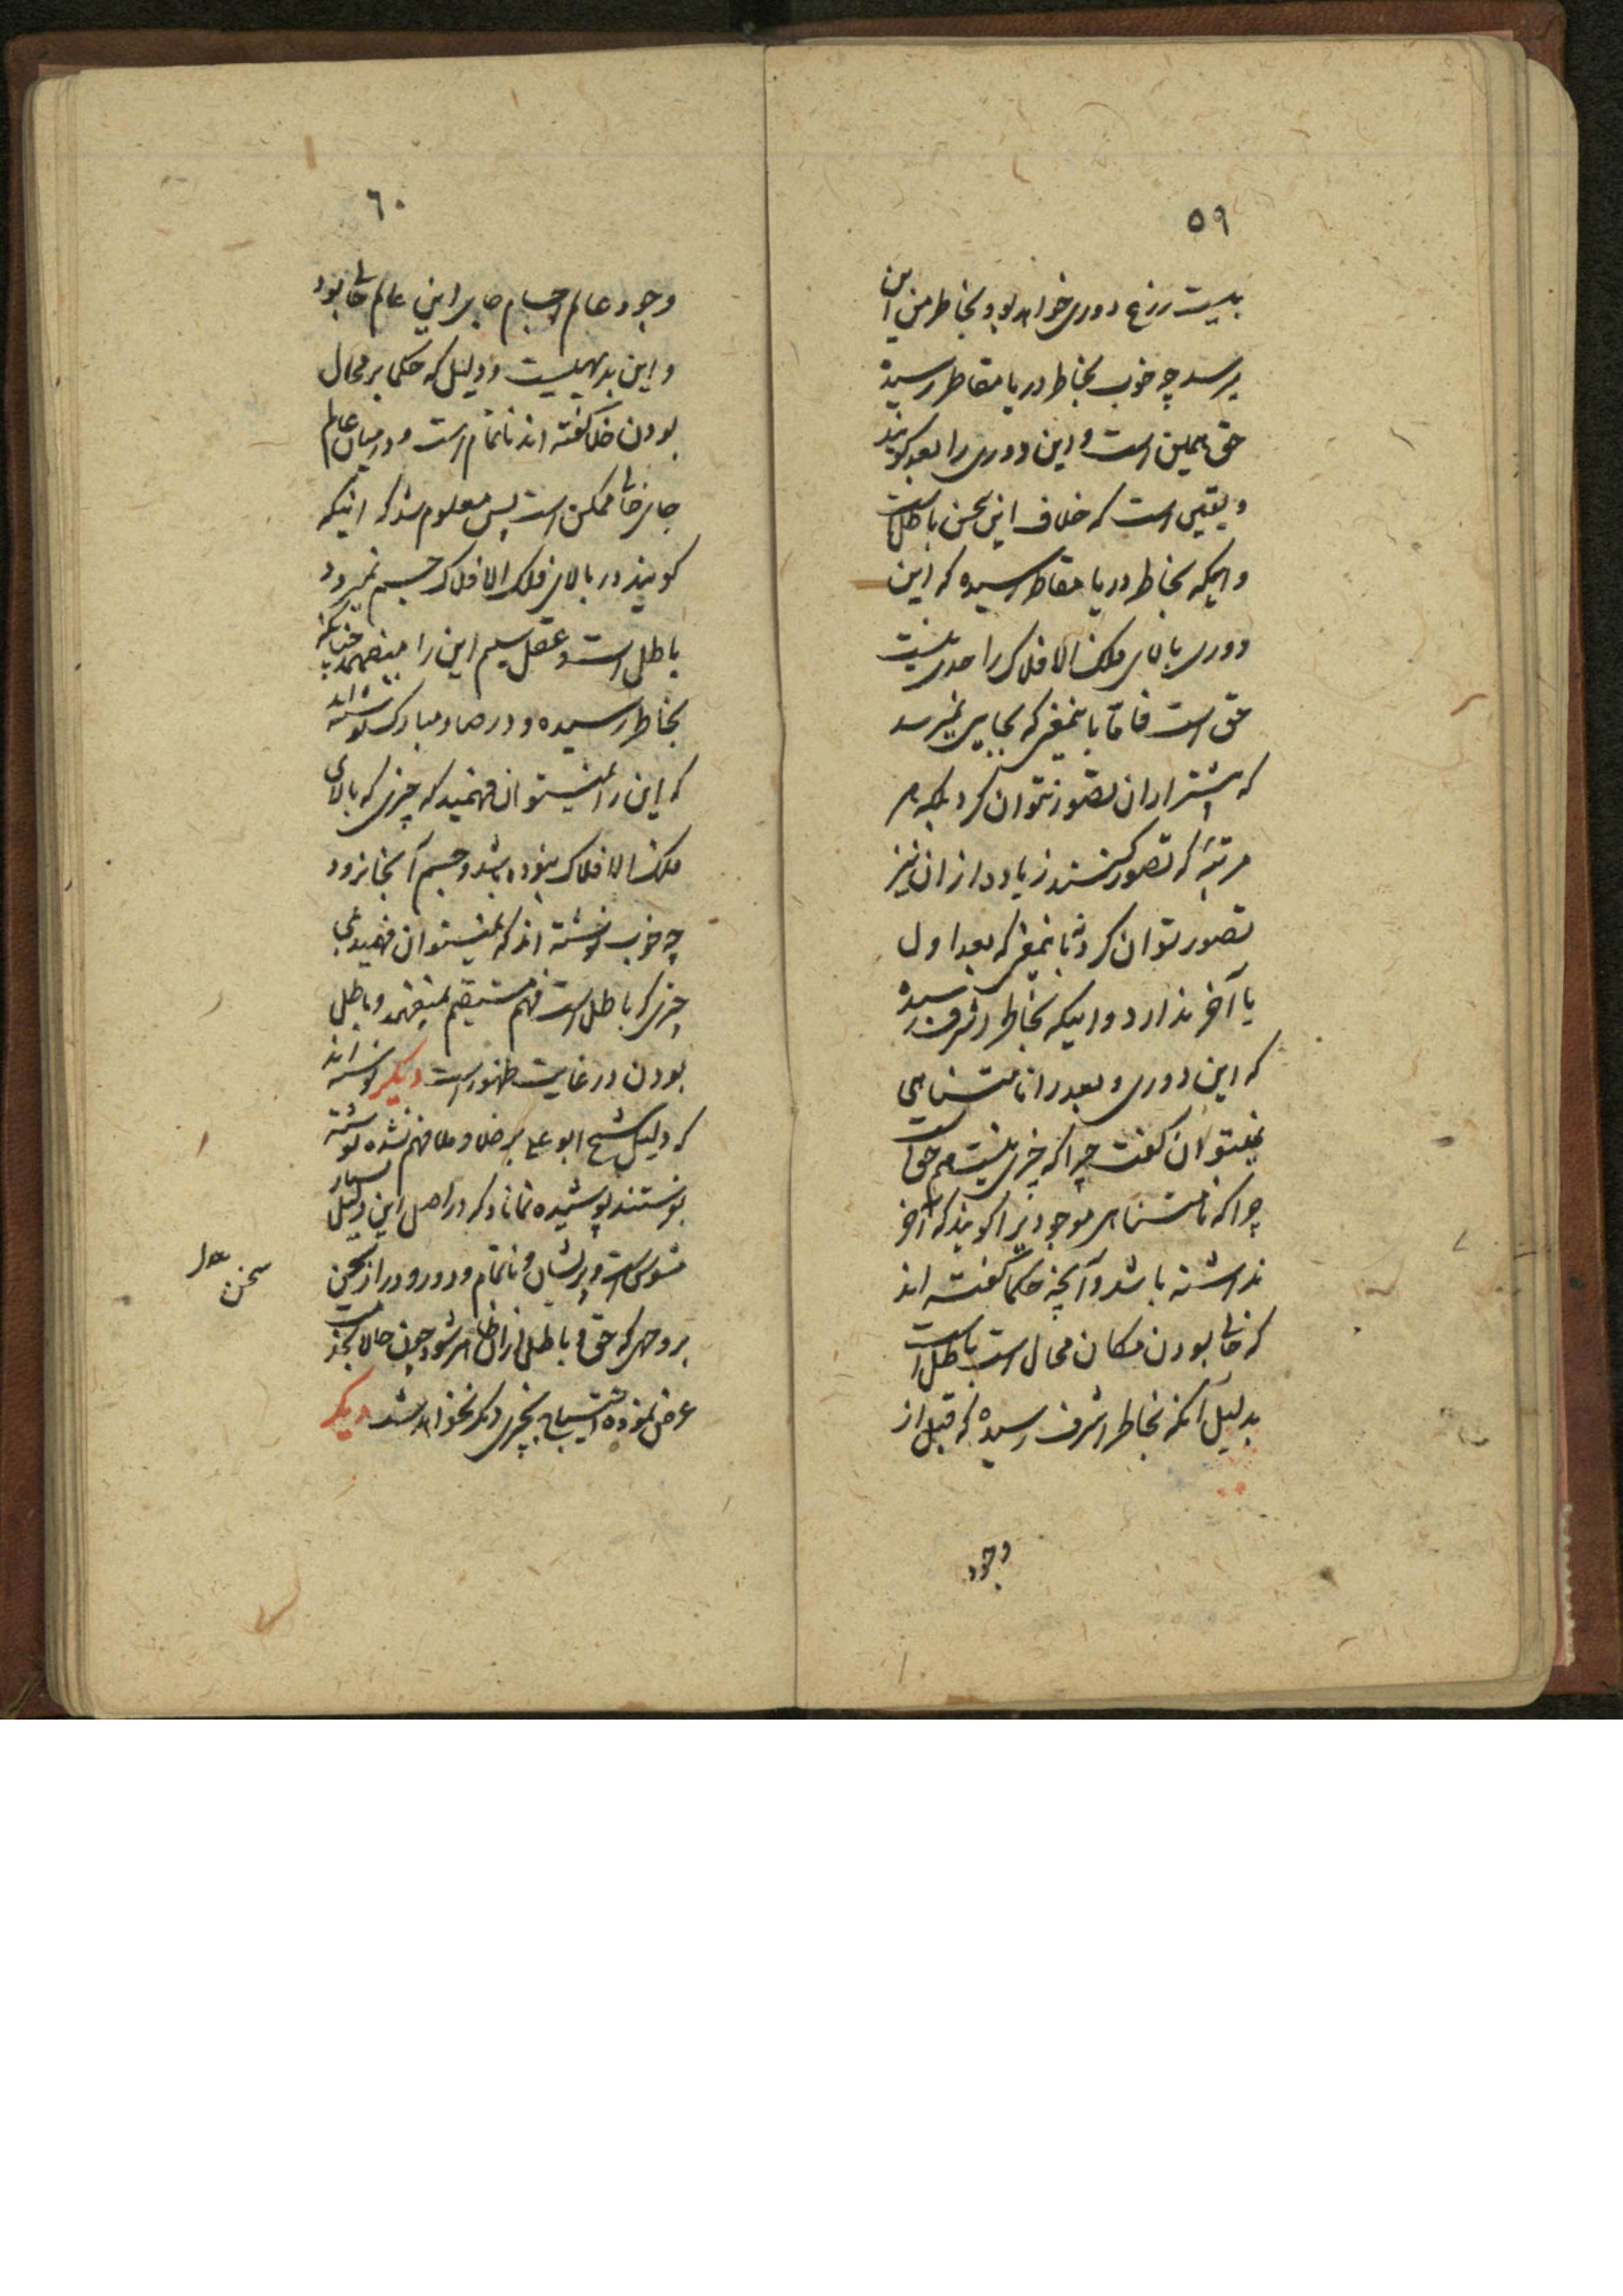 ۵۹
بیست زرع دوری خواهد بود بخاطر من این
میرسد چه خوب بخاطر دریا مقاطر رسیده
حق همین است و این دوری را بعد گویند
و یقین است که خلاف این سخن باطل است
و اینکه بخاطر دریا مقاطر رسیده که این
دوری بالای فلک الافلاک را حدی نیست
حق است فاما باینمعنی که بجایی نمیرسد
که بیشتر از ان تصور نتوان کرد بلکه هر
مرتبه که تصور کنند زیاده از ان نیز
تصور توان کرد نه باینمعنی که بعد اول
یا آخر ندارد و اینکه بخاطر اشرف رسیده
که این دوری و بعد را نامتناهی
نمیتوان گفت چرا که چیزی نیست هم حق است
چرا که نامتناهی موجودیرا گویند که آخر
نداشته باشد و آنچه حکما گفته اند
که خالی بودن مکان محال است باطل است
بدلیل آنکه بخاطر اشرف رسیده که قبل از
وجود
۶۰
وجود عالم اجسام جای این عالم خالی بود
و این بدیهیست و دلیل که حکما بر محال
بودن خلا گفته اند ناتمام است و در میان عالم
جای خالی ممکن است پس معلوم شد که اینکه
گویند در بالای فلک الافلاک جسم نمیرود
باطل است و عقل سلیم این را نمیفهمد چنانکه
بخاطر رسیده و در صاد مبارک نوشته اند
که این را نمیتوان فهمید که چیزی که بالای
فلک الافلاک نبوده باشد و جسم آنجا نرود
چه خوب نوشته اند که نمیتوان فهمید بلی
چیزی که باطل است فهم مستقیم نمیفهمد و باطل
بودن در غایت ظهور است دیگر نوشته اند
که دلیل شیخ ابو علی بر خلا و ملا فهم نشده نوشته
بفرستند پوشیده نماناد که در اصل این دلیل بسیار
مشوش است و پریشان و ناتمام و دور و دراز سخن
بر وجهی که حق و باطل از ان ظاهر شود چون حالا بخدمت
عرض نموده احتیاج بچیزی دیگر نخواهد شد دیگر
سخن